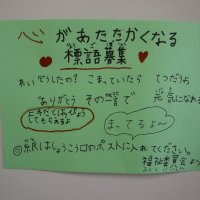 心があたたかくなる
標語募集
れい どうしたの? こまっていたら てつだうよ
ありがとう その一言で 元気になれる
まってるよ〜
◎紙はしょうこう口のポストに入れてください。
福祉委員会より